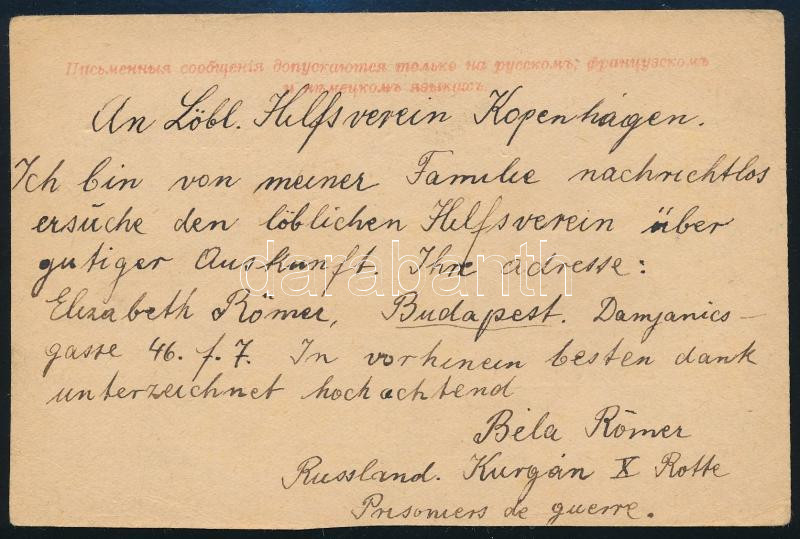 Письменныя сообщенія допускаются только на русскомъ, французскомъ
и нѣмецкомъ языкахъ.
An Löbl. Hilfsverein Kopenhagen.
Ich bin von meiner Familie nachrichtlos
ersuche den löblichen Hilfsverein über
gutiger Auskunft. Ihre adresse:
darabanth
Elizabeth Römer, Budapest. Damjanics-
gasse 46. f. 7. In vorhinein besten dank
unterzeichnet hochachtend
Béla Römer
Russland. Kurgán X Rotte
Prisoniers de guerre.